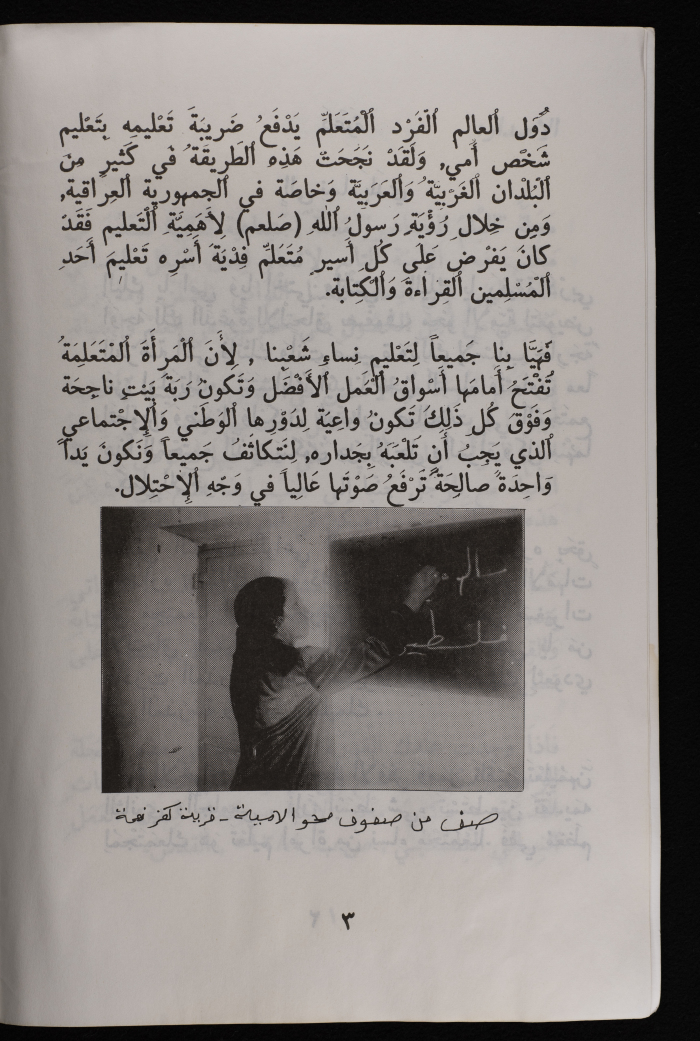 دُوَل ٱلعالم ٱلْفَرْد ٱلْمُتَعَلِّم يَدْفَعُ ضَريبَةَ تَعْليمِه بِتَعْليم
شَخْص أُمي, وَلَقَدْ نَجَحَتْ هَذِه ٱلطَريقَةُ في كَثيرٍ مِنَ
ٱلْبُلْدان ٱلغَرْبيَّة وَٱلعَرَبيَّة وَخاصَة في ٱلجمهورية ٱلعِراقية,
وَمِن خِلال رُؤْيَة رَسولُ ٱلله (صَلعم) لِأَهَمِيَّة ٱلْتَعليم فَقَدْ
كانَ يَفرْض عَلَى كُل أَسيرٍ مُتَعَلمِّ فِدْيَةَ أَسْرِه تَعْليمَ أَحَدِ
ٱلْمُسْلمين ٱلقراءةَ وَٱلْكِتابة.
فَهَيَّا بِنا جَميعاً لِتَعْليم نِساءِ شَعْبنا , لِأَنَ ٱلْمَرأَةَ ٱلْمتَعَلِمَةُ
تُفْتَحُ أَمامَها أَسْواقُ ٱلْعَمل ٱلأَفْضَل وَتَكونُ رَبَة بَيْتٍ ناجِحَة
وَفَوْقَ كُلِ ذَلِكَ تَكونُ واعِيَة لِدَوْرِها ٱلوَطَني وَٱلإِجْتماعي
ٱلذي يَجِبُ أَن تَلْعَبَهُ بِجَداره, لِنَتكاثَفُ جَميعاً وَنَكونَ يَداً
وَاحِدَةً صالِحَة تَرْفَعُ صَوْتَها عَالِياً في وَجْهِ ٱلإِحْتِلال.
سالم
فلسطين
صف من صفوف محو الامية - قرية كفر نعمة
٣